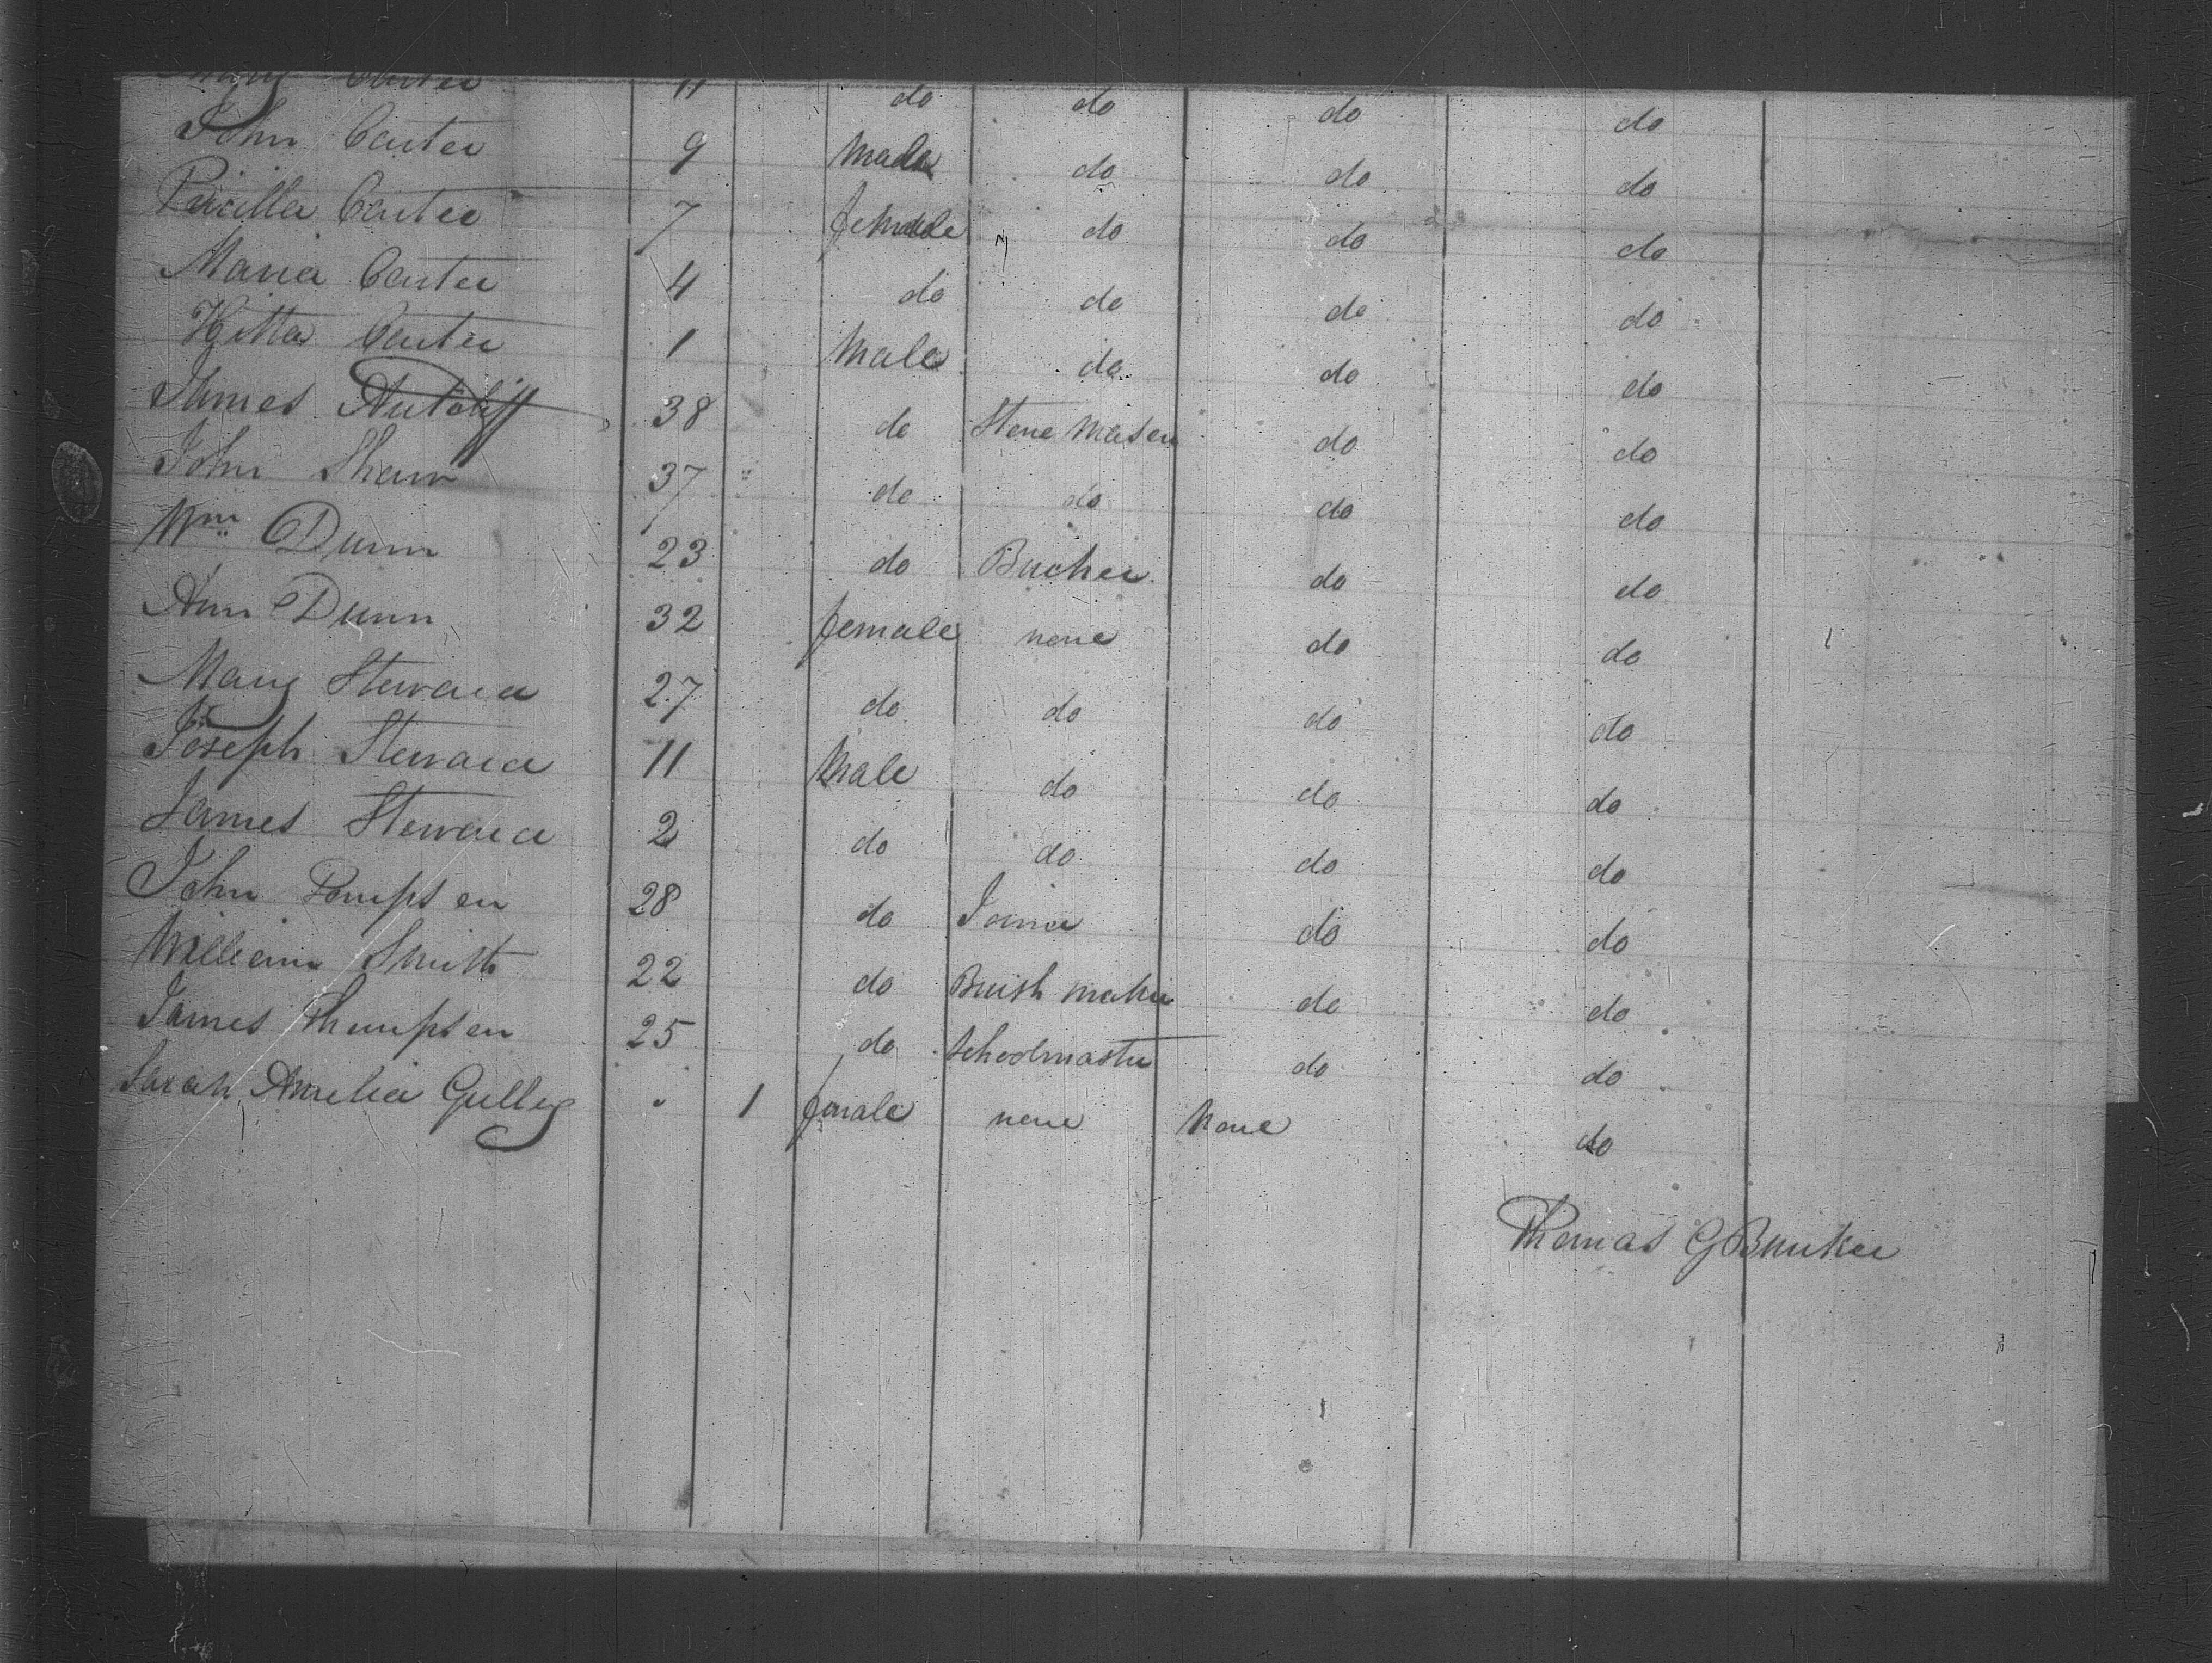 Mary Carter 11 do do do do
John Carter 9 Male do do do
Pricilla Carter 7 female do do do
Maria Carter 4 do do do do
Carter 1 Male do do do
James 38 do Stone Mason do do
John Shaw 37 do do do do
Wm Dunn 23 do Bucher do do
Ann Dunn 32 female none do do
Mary Steward 27 do do do do
Joseph Steward 11 Male do do do
James Steward 2 do do do do
John 28 do Joiner do do
William Smith 22 do Brush maker do do
James Thompson 25 do Schoolmaster do do
Sarah Amelia Gulley 1 female none None do
Thomas G Bunker